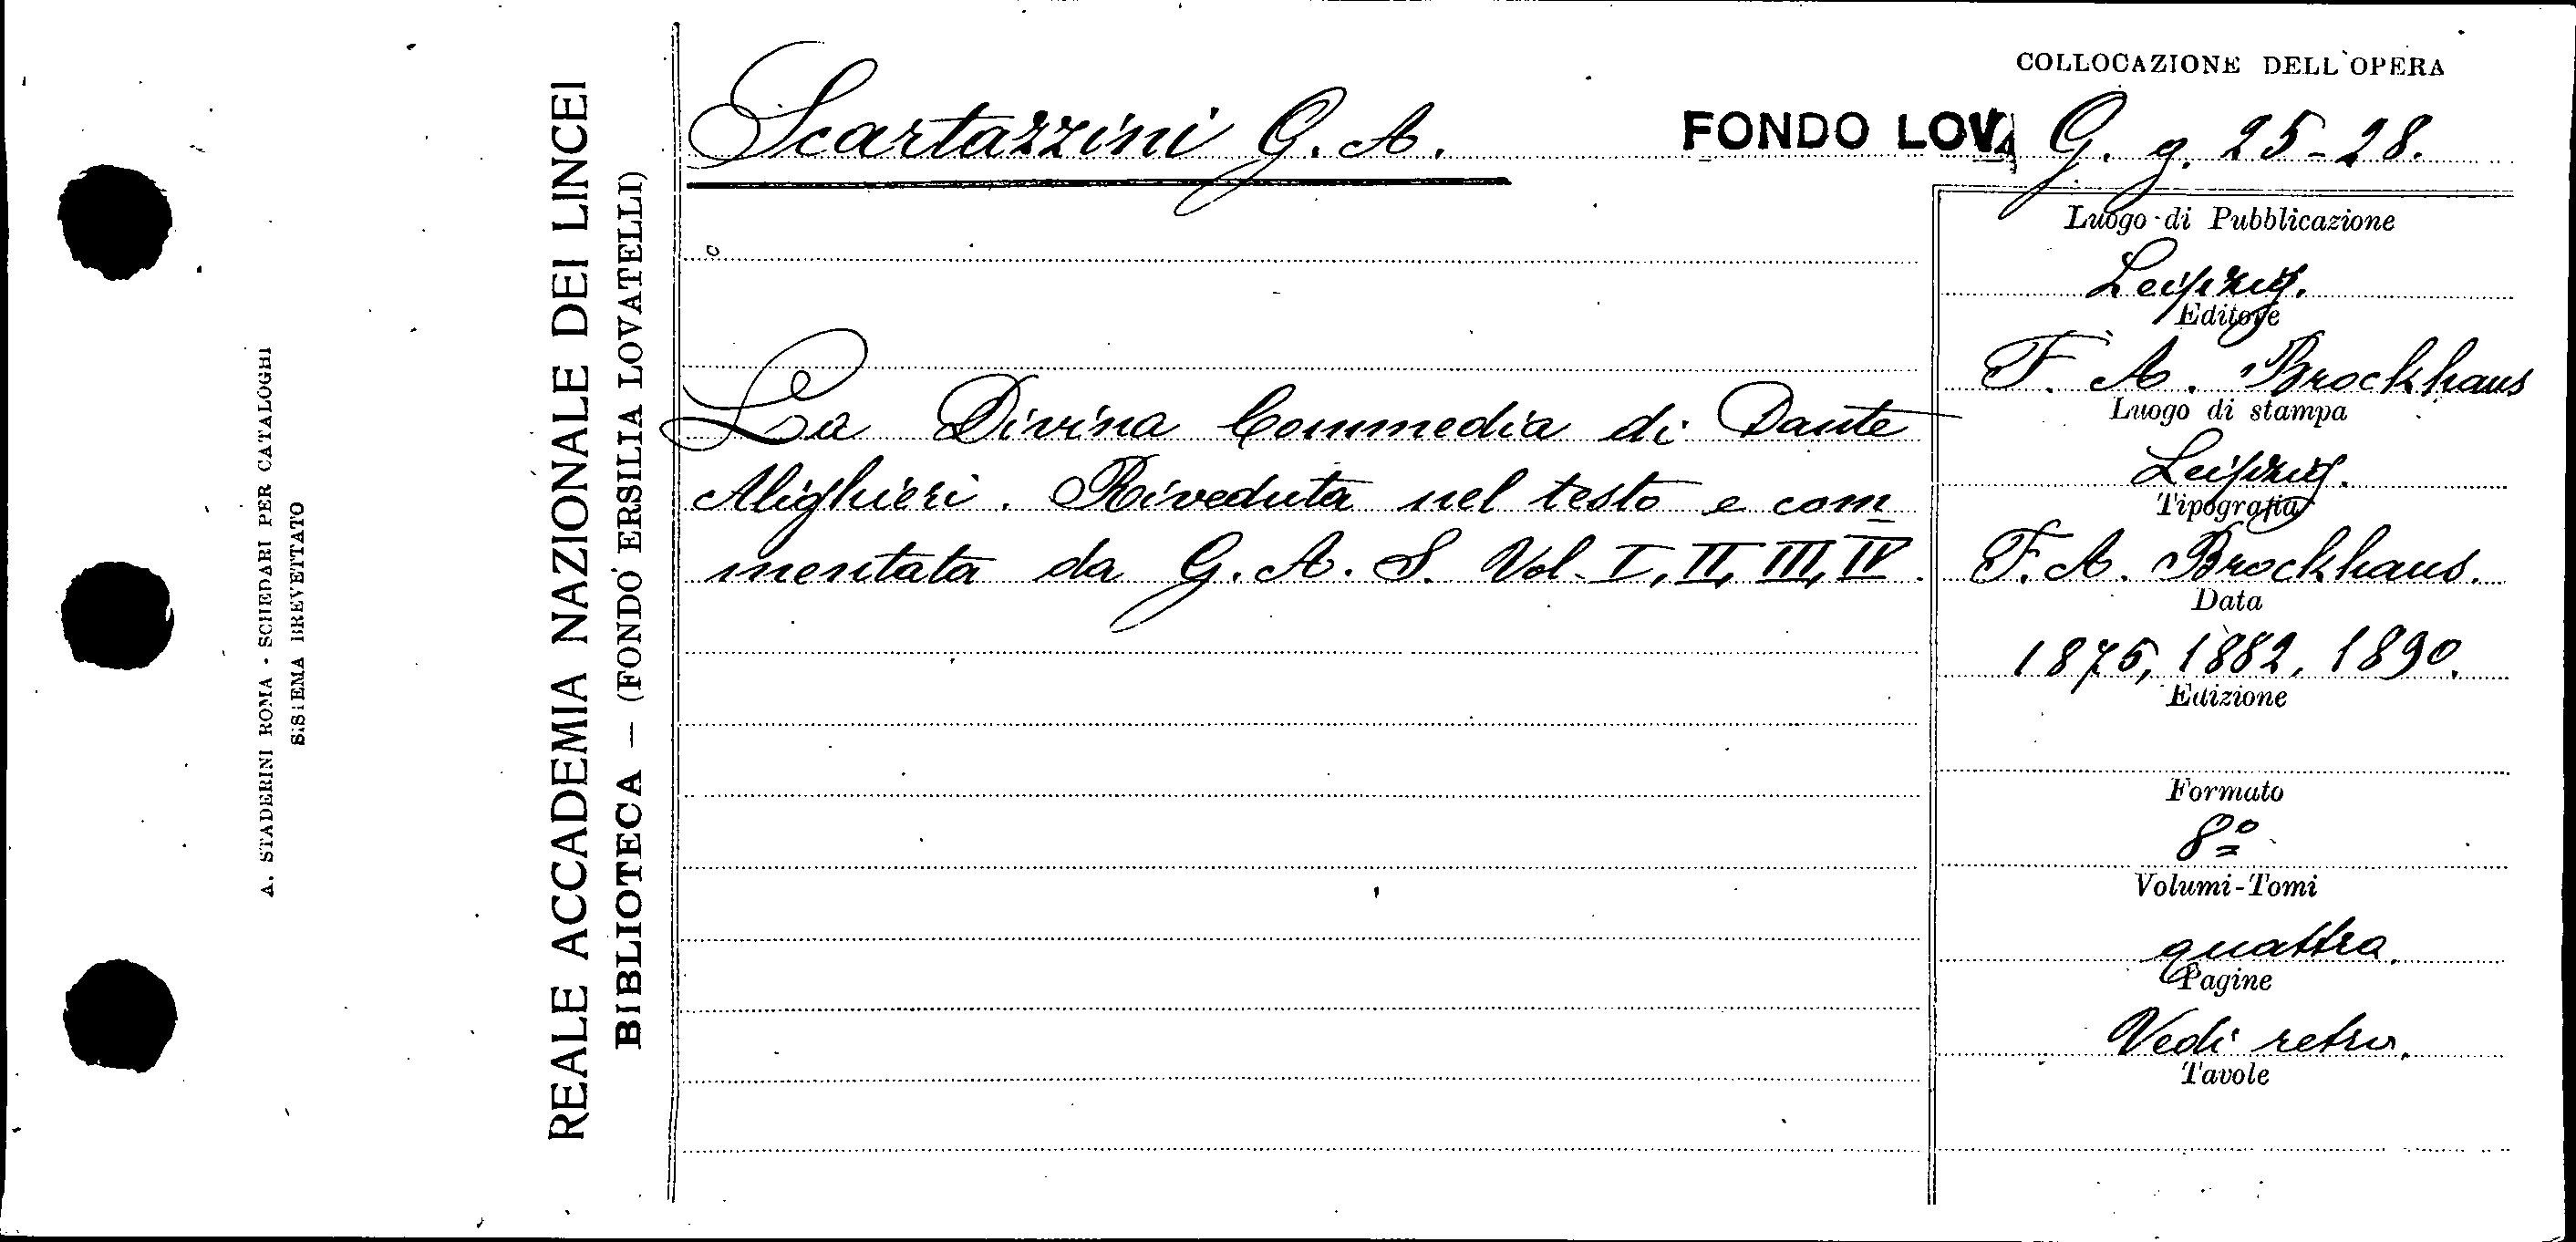 A. STADERINI ROMA - SCHEDARI PER CATALOGHI
SISTEMA BREVETTATO
REALE ACCADEMIA NAZIONALE DEI LINCEI
BIBLIOTECA — (FONDO ERSILIA LOVATELLI)
COLLOCAZIONE DELL'OPERA
Scartazzini G. A.
FONDO LOVA G. g. 25-28.
La Divina Commedia di Dante
Alighieri. Riveduta nel testo e com
mentata da G. A. S. Vol. I, II, III, IV.
Luogo di Pubblicazione
Leipzig.
Editore
F. A. Brockhaus
Luogo di stampa
Leipzig.
Tipografia
F. A. Brockhaus.
Data
1875, 1882, 1890.
Edizione
Formato
8º
Volumi-Tomi
quattro.
Pagine
Vedi retro.
Tavole